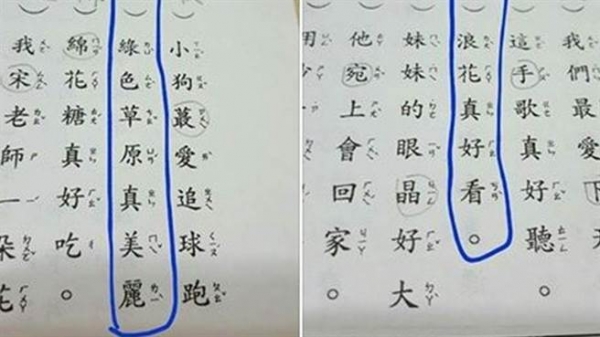 小狗蕞愛追球跑
綠色草原真美麗
綿花糖真好吃。
我宋老師一朵花
我們最愛下
這手歌真好聽。
浪花真好看。
妹妹的眼晶好大
他宛上會回家。
用